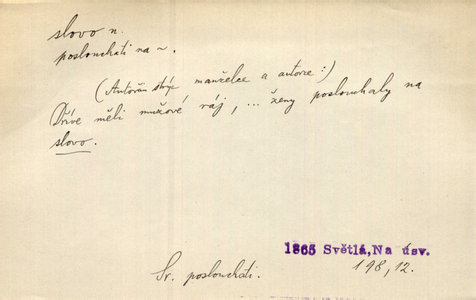 slovo n.
poslouchati na ~.
(Autorčin strýc manželce a autorce:)
Dříve měli mužové ráj, ... ženy poslouchaly na
slovo.
1865 Světlá, Na úsv.
198, 12.
Sr. poslouchati.